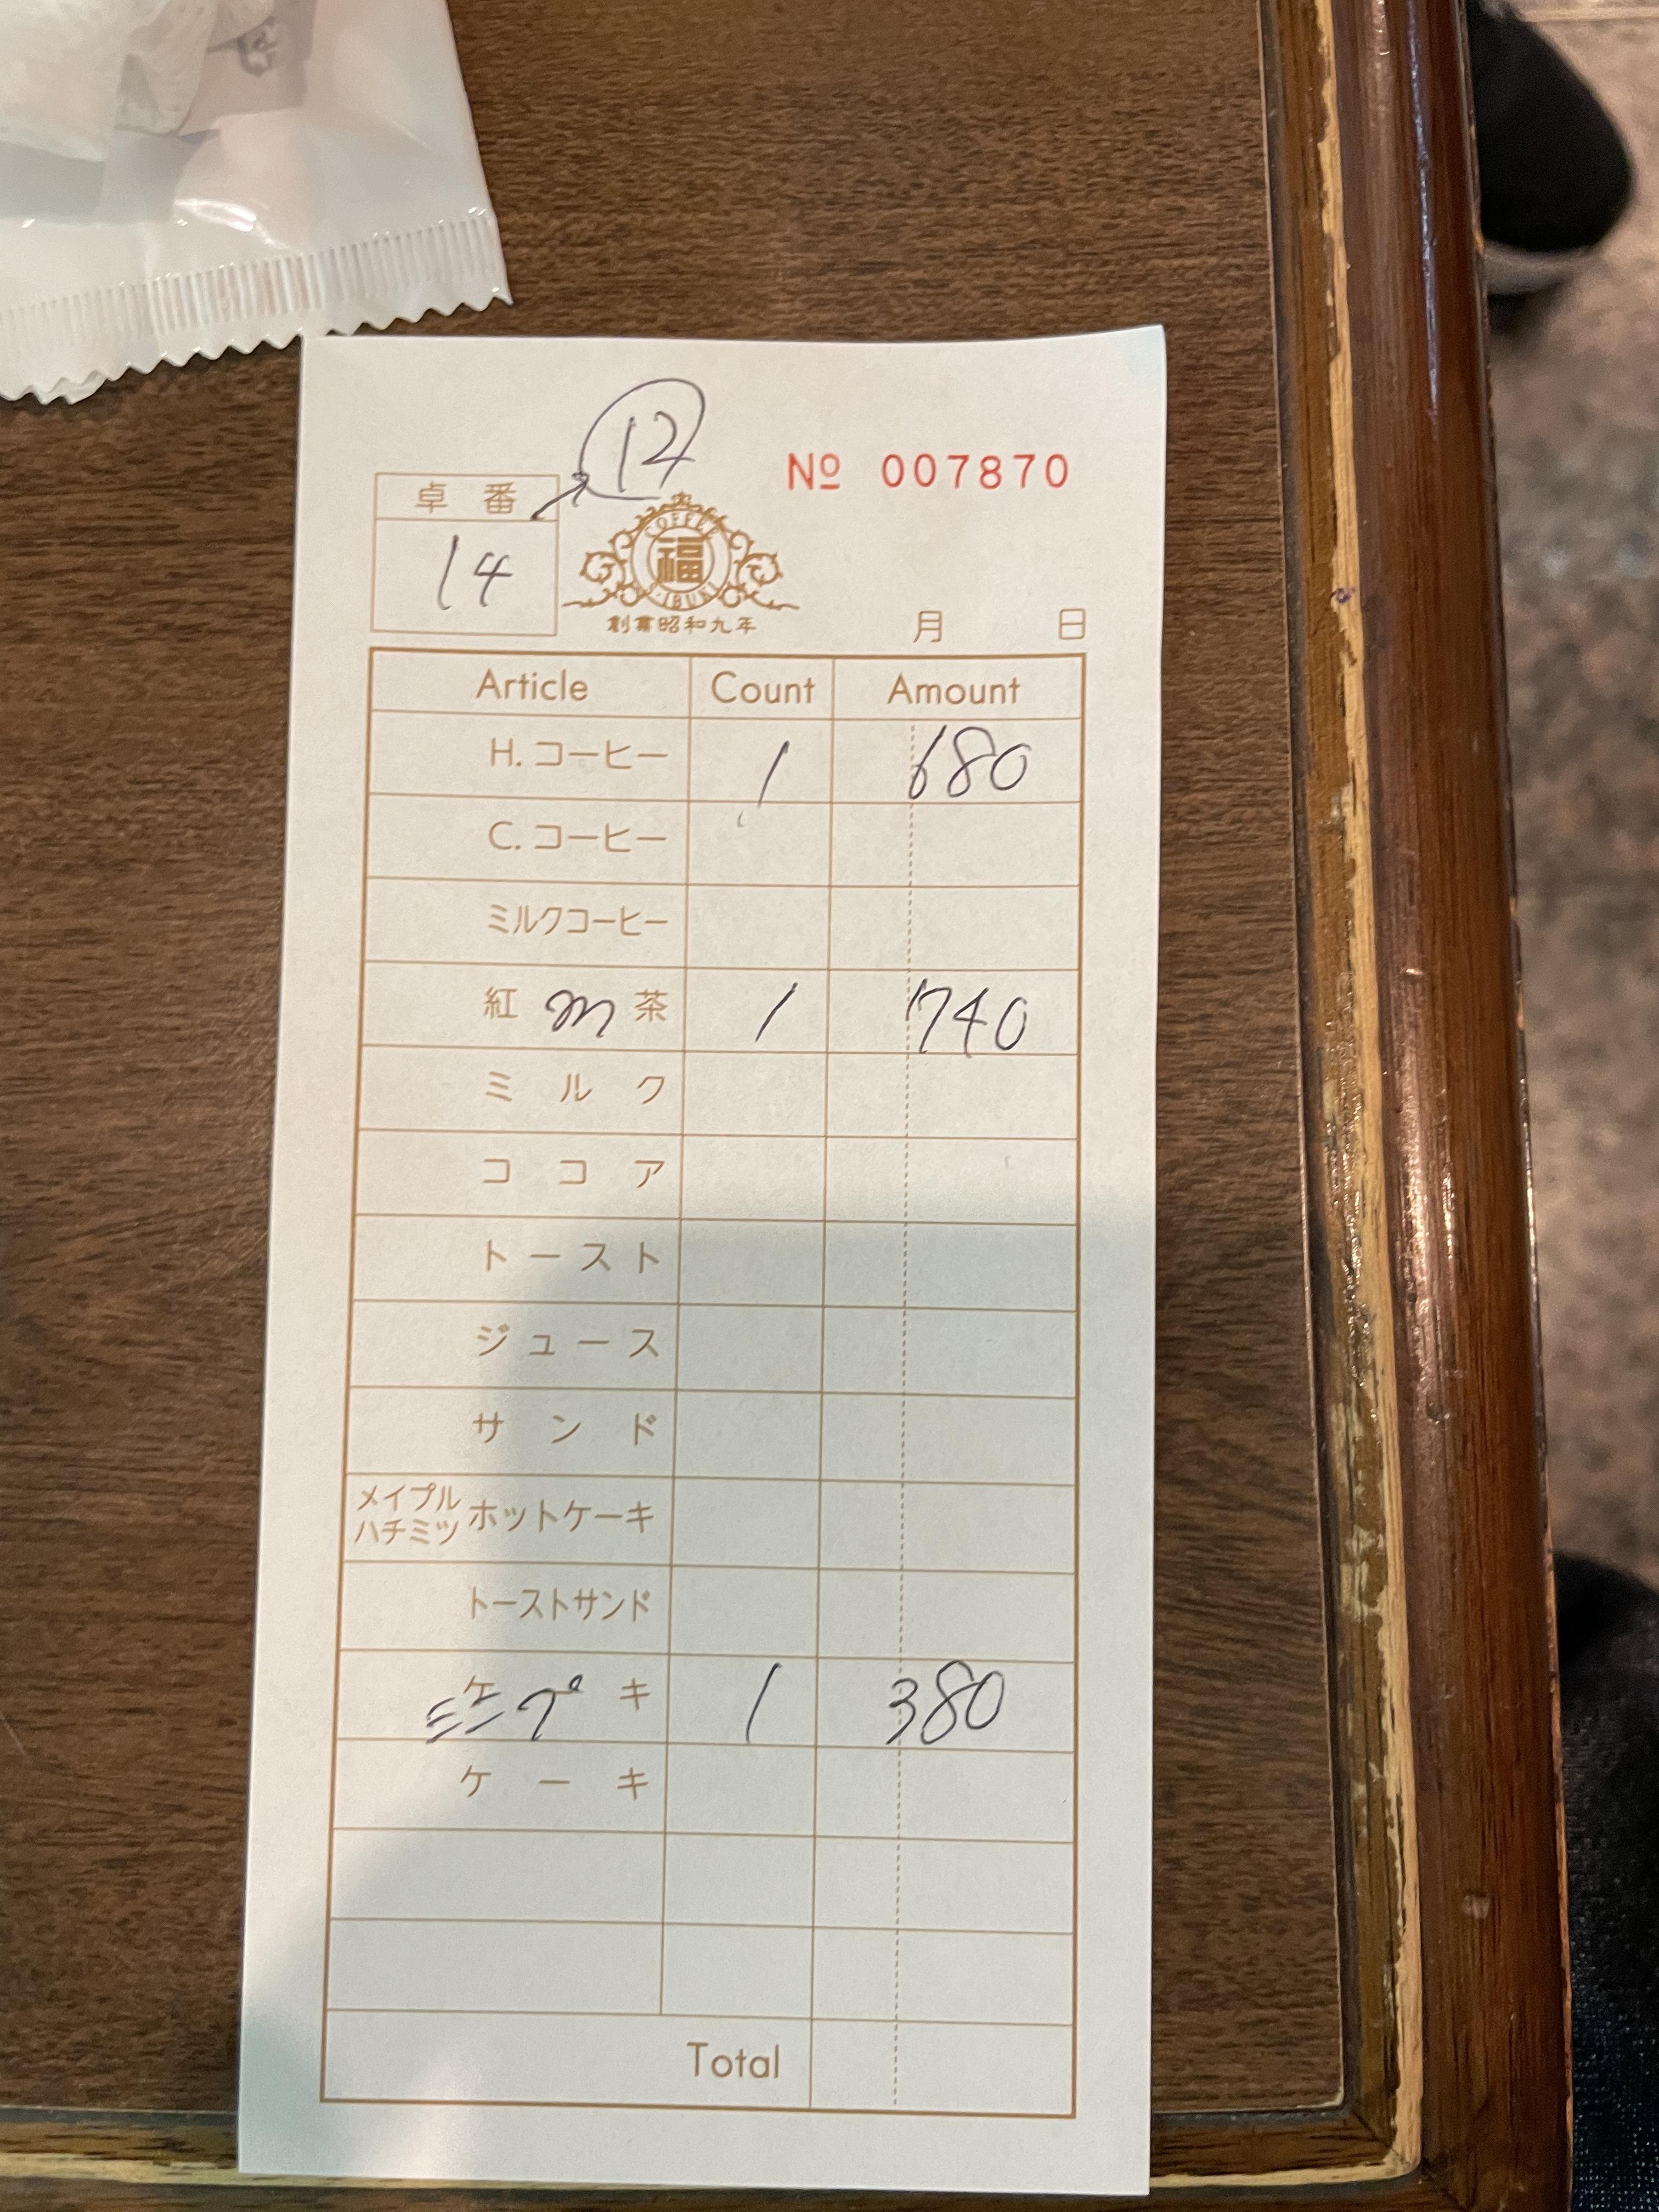 ⑫
№ 007870
卓番
14
COFFEE
福
IBUKI
創業昭和九年
月 日
Article Count Amount
H.コーヒー 1 680
C.コーヒー
ミルクコーヒー
紅 m 茶 1 740
ミルク
ココア
トースト
ジュース
サンド
メイプル
ハチミツ ホットケーキ
トーストサンド
ケーキ ミニプ 1 380
ケーキ
Total